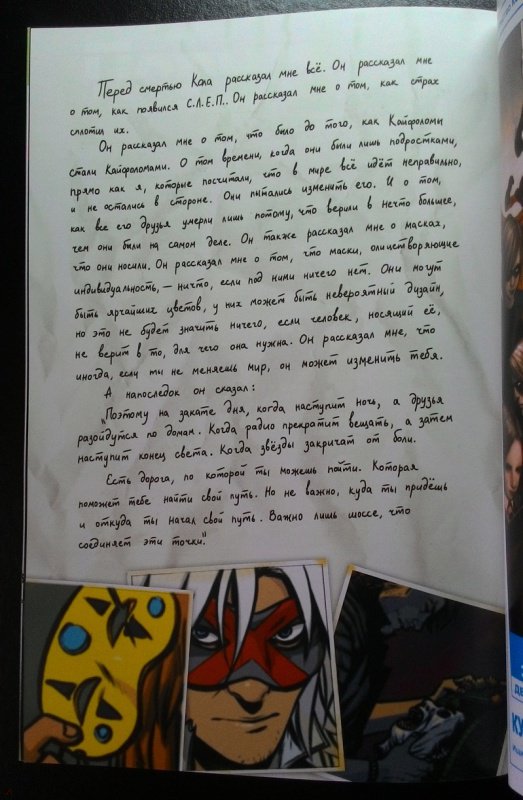 Перед смертью Кола рассказал мне всё. Он рассказал мне
о том, как появился С.Л.Е.П. Он рассказал мне о том, как страх
сплотил их.
Он рассказал мне о том, что было до того, как Кайфоломы
стали Кайфоломами. О том времени, когда они были лишь подростками,
прямо как я, которые посчитали, что в мире всё идёт неправильно,
и не остались в стороне. Они пытались изменить его. И о том,
как все его друзья умерли лишь потому, что верили в нечто большее,
чем они были на самом деле. Он также рассказал мне о масках,
что они носили. Он рассказал мне о том, что маски, олицетворяющие
индивидуальность, — ничто, если под ними ничего нет. Они могут
быть ярчайших цветов, у них может быть невероятный дизайн,
но это не будет значить ничего, если человек, носящий её,
не верит в то, для чего она нужна. Он рассказал мне, что
иногда, если ты не меняешь мир, он может изменить тебя.
А напоследок он сказал:
"Поэтому на закате дня, когда наступит ночь, а друзья
разойдутся по домам. Когда радио прекратит вещать, а затем
наступит конец света. Когда звёзды закричат от боли.
Есть дорога, по которой ты можешь пойти. Которая
поможет тебе найти свой путь. Но не важно, куда ты придёшь
и откуда ты начал свой путь. Важно лишь шоссе, что
соединяет эти точки".